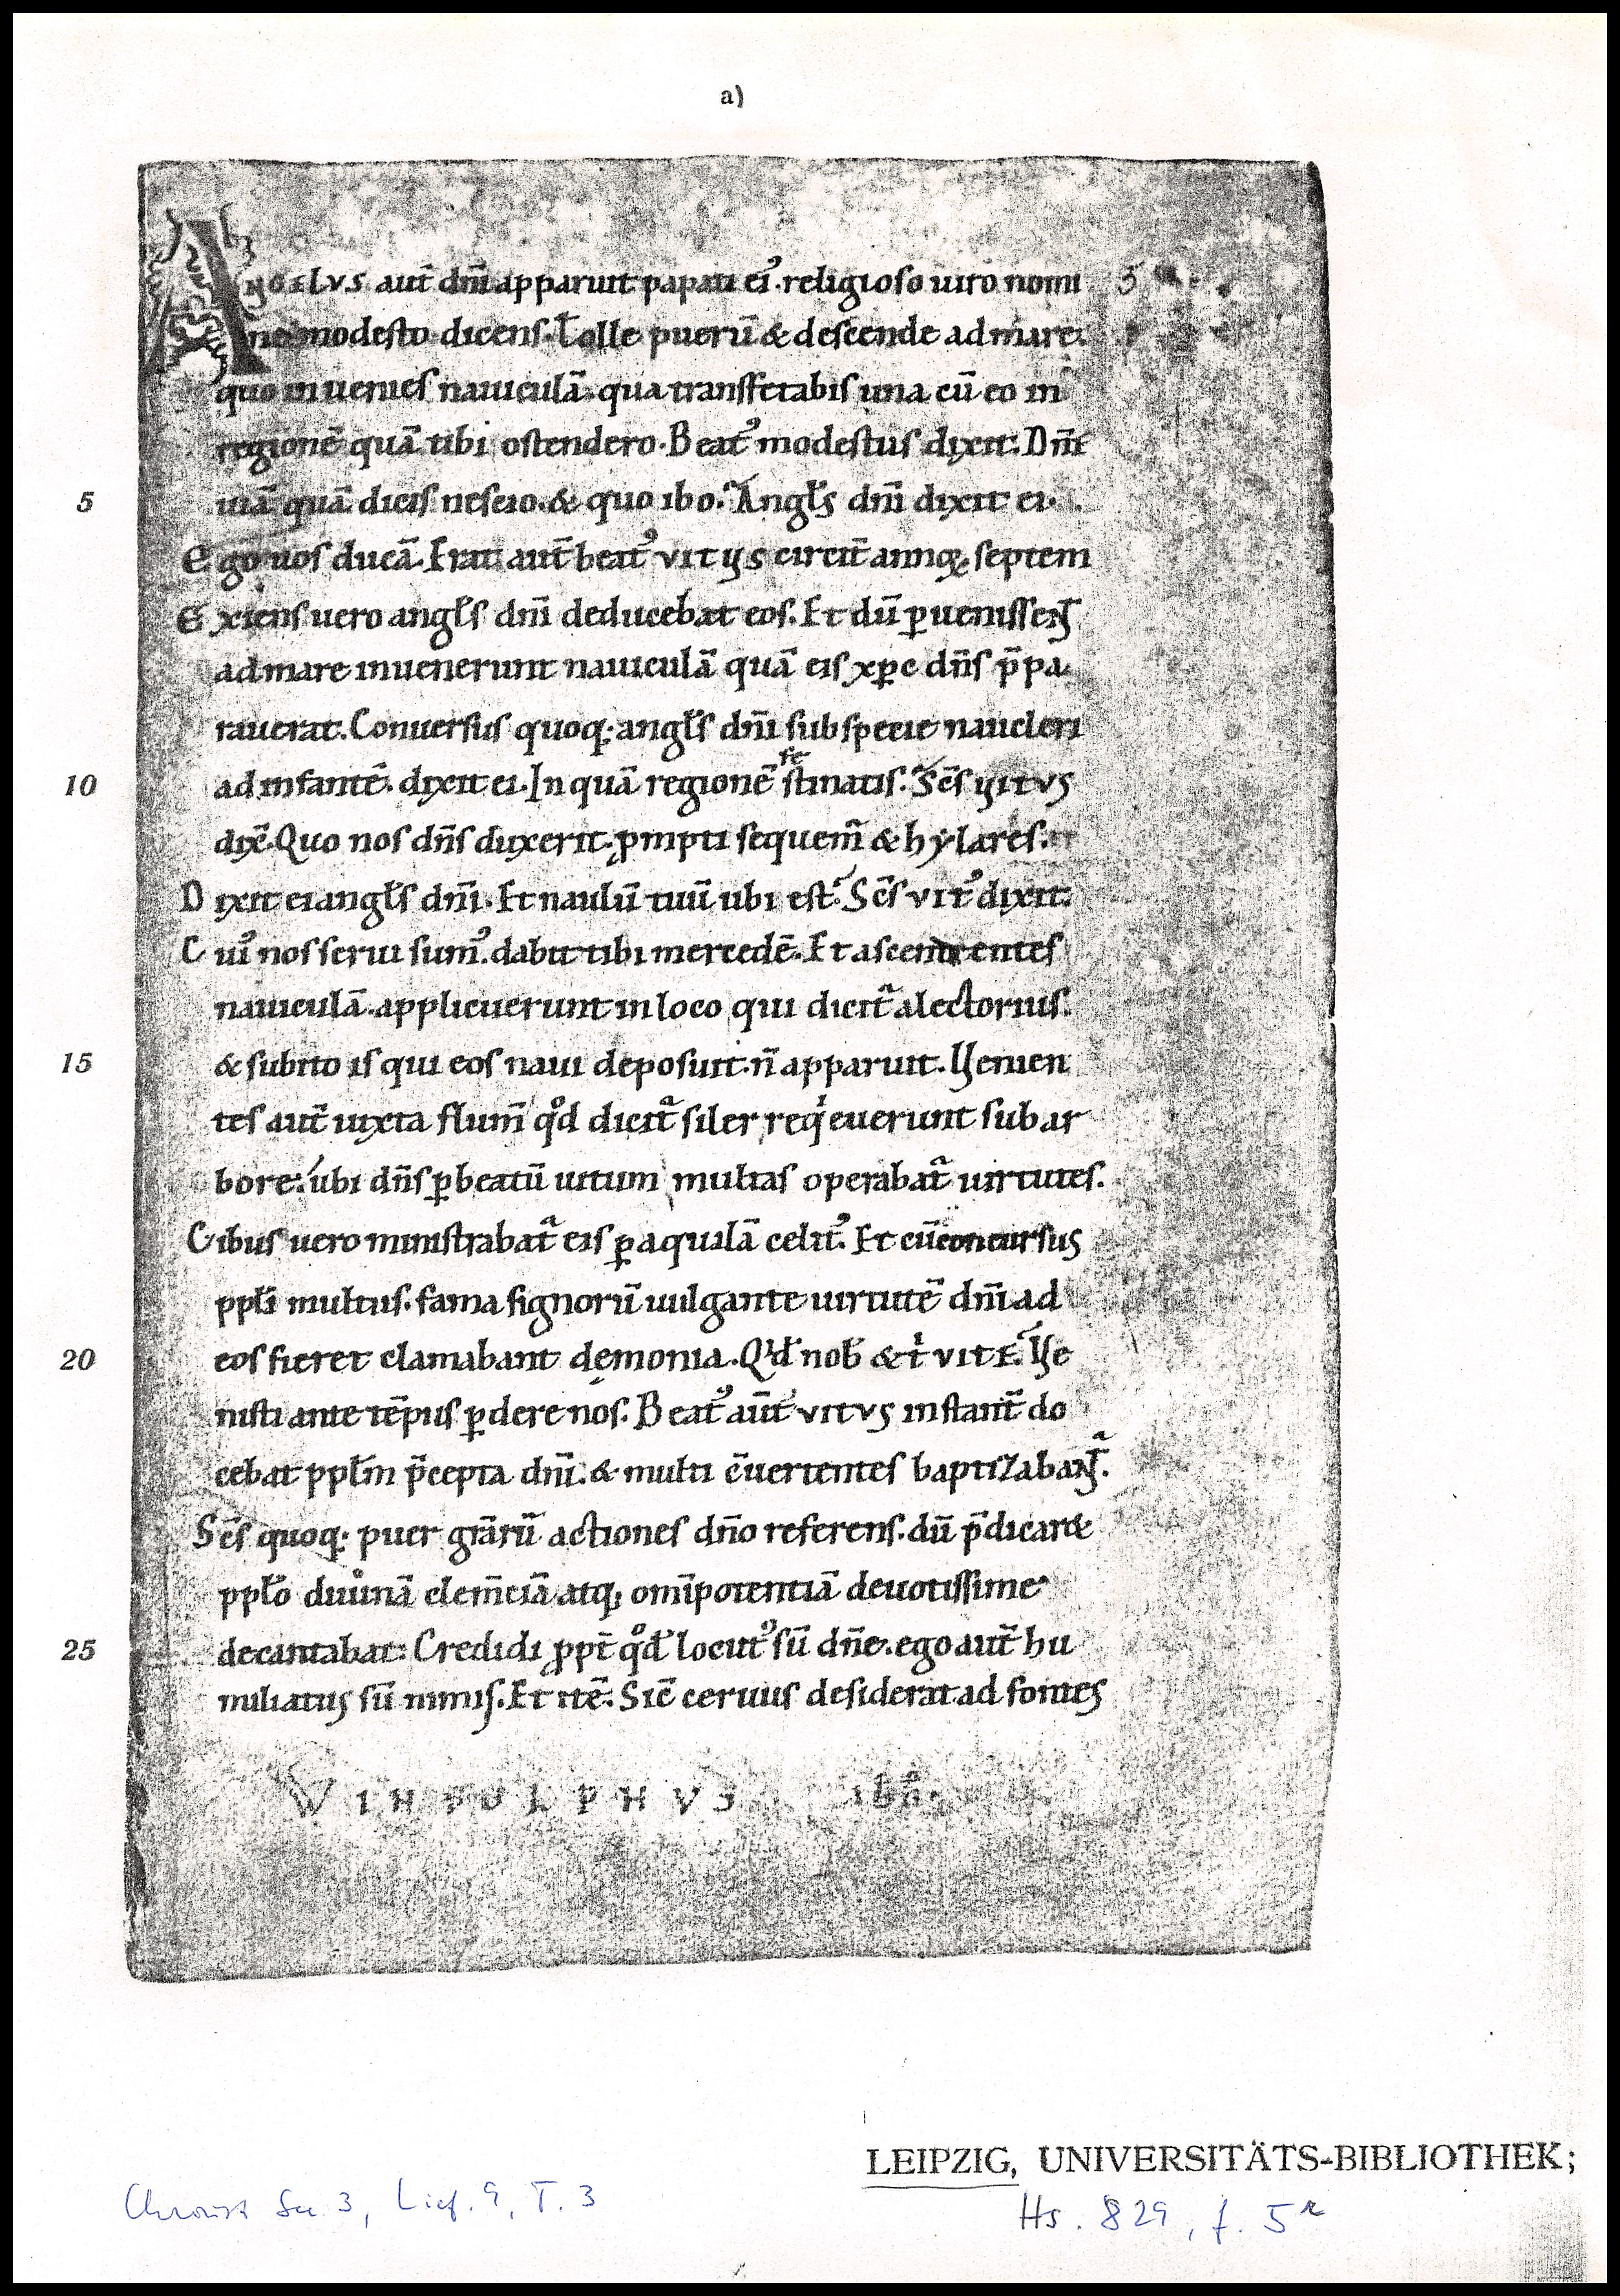 a)
Angelus aut̄ dn̄i apparuit papati ei᾿ religioso uiro nomi 3
ne modesto dicens. Tolle puerū & descende ad mare.
quo inuenies nauiculā. qua transfretabis una cū eo in
regionē quā tibi ostendero. Beat᾿ modestus dixit: Dn̄e
5 uiā quā dicis nescio. & quo ibo? Angl̄s dn̄i dixit ei.
Ego uos ducā. Erat aut̄ beat᾿ VITUS circit̄ annoꝝ septem
Exiens uero angl̄s dn̄i deducebat eos. Et dū ꝑuenissent
ad mare inuenerunt nauiculā quā eis xp̄c dn̄s p̄pa
rauerat. Conuersus quoq; angl̄s dn̄i sub specie naucleri
fe
10 ad infantē. dixit ei. In quā regionē stinatis? Sc̄s VITUS
dix̄. Quo nos dn̄s duxerit. ꝓmpti sequem̄ & hylares.
Dixit ei angl̄s dn̄i. Et naulū tuū ubi est? Sc̄s VIT᾿ dixit.
Cui᾿ nos serui sum᾿. dabit tibi mercedē. Et ascendentes
nauiculā. applicuerunt in loco qui dicit̄ alectorius.
15 & subito is qui eos naui deposuit. n̄ apparuit. Uenien
tes aut̄ iuxta flum̄ qd̊ dicit̄ siler, reqⁱeuerunt sub ar
bore. ubi dn̄s ꝑ beatū uitum multas operabat̄ uirtutes.
Cibus uero ministrabat̄ eis ꝑ aquilā celit᾿. Et cū concursus
ppl̄i multus. fama signorū uulgante uirtutē dn̄i ad
20 eos fieret clamabant dęmonia. Qⁱd nob̄ & tⁱ VITE? Ue
nisti ante tēpus ꝑdere nos. Beat᾿ aut̄ VITUS instant̄ do
cebat ppl̄m p̄cepta dn̄i. & multi c̄uertentes baptizabant̄.
Sc̄s quoq; puer grārū actiones dn̄o referens. dū p̄dicar&
ppl̄o diuinā clem̄ciā atq; omīpotentiā deuotissime
25 decantabat: Credidi ꝓpt̄ qd̊ locut᾿ sū dn̄e. ego aut̄ hu
miliatus sū nimis. Et itē. Sic̄ ceruus desiderat ad fontes
WINFOLPHVS
LEIPZIG, UNIVERSITÄTS-BIBLIOTHEK;
Chroust Ser. 3, Lief. 9, T. 3
Hs. 829, f. 5ʳ